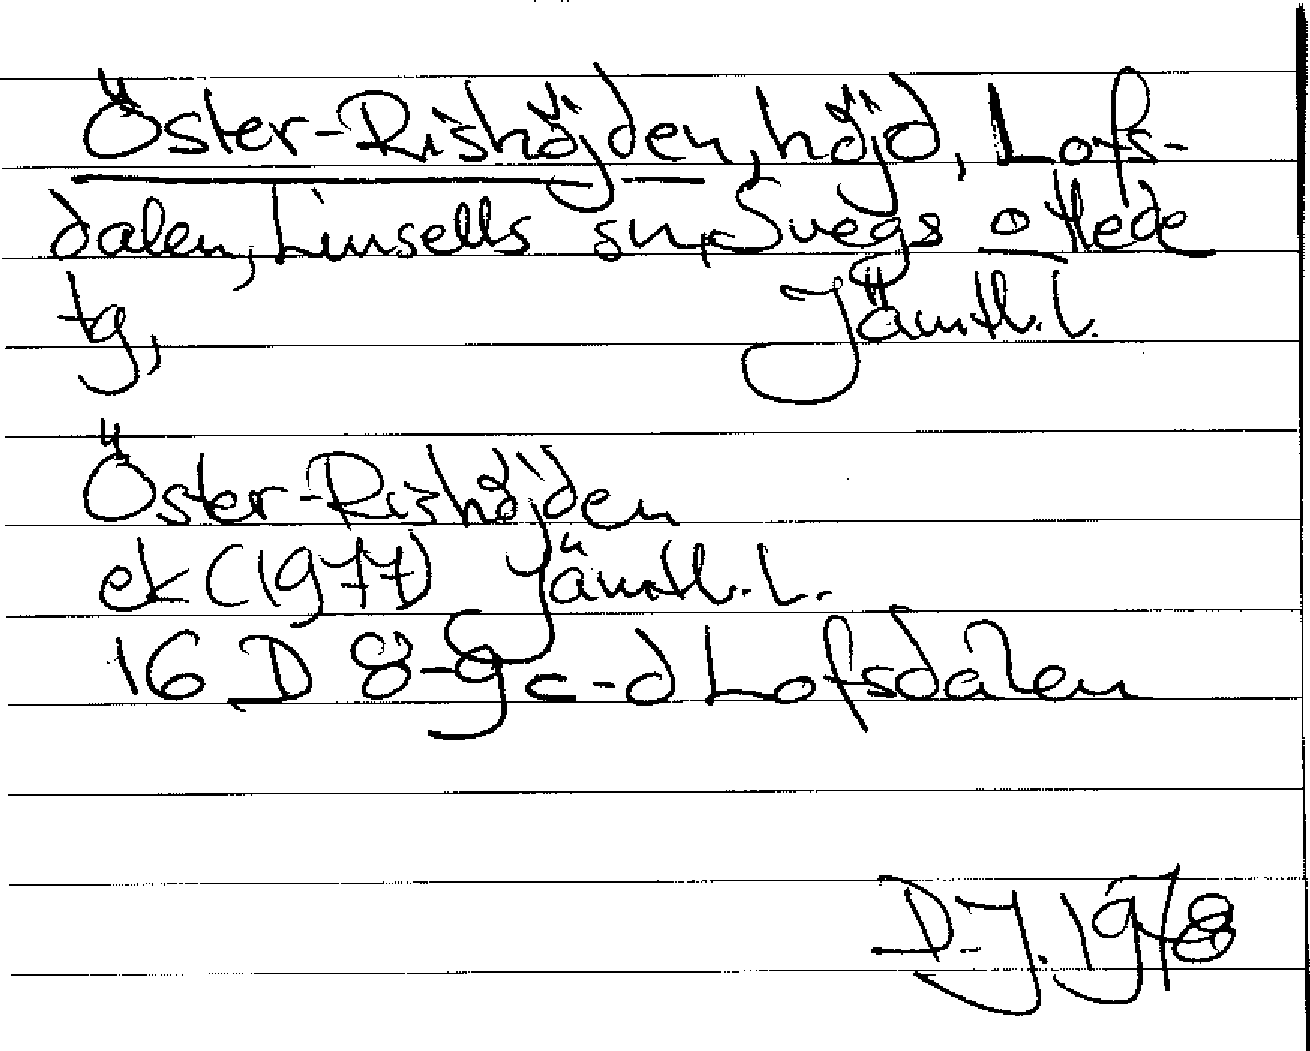 Öster-Rishöjden, höjd, Lofs-
dalen, Linsells sn, Svegs o Hede
tg, Jämtl. l.
Öster-Rishöjden
ek (1977) Jämtl. l.
16 D 8-9 c-d Lofsdalen
D.J. 1978